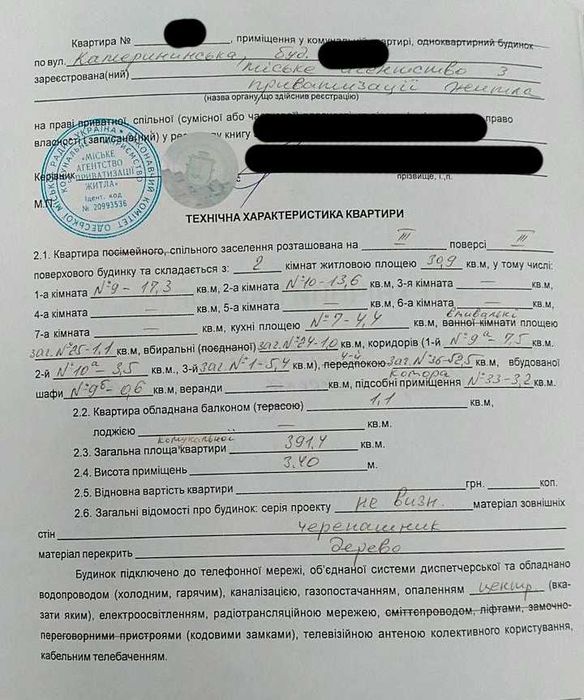 Квартира № , приміщення у комунальній квартирі, одноквартирний будинок
по вул. Катерининська, буд.
зареєстрована(ний) Міське агентство з
приватизації житла
(назва органу, що здійснив реєстрацію)
на праві приватної, спільної (сумісної або час право
власності (записано(ий) у реє книгу
Керівник
прізвище, і.,п.
М.П.
УКРАЇНА
ВИКОНАВЧИЙ КОМІТЕТ ОДЕСЬКОЇ МІСЬКОЇ РАДИ
КОМУНАЛЬНЕ ПІДПРИЄМСТВО
«МІСЬКЕ
АГЕНТСТВО
ПРИВАТИЗАЦІЇ
ЖИТЛА»
Ідент. код
№ 20993536
ТЕХНІЧНА ХАРАКТЕРИСТИКА КВАРТИРИ
2.1. Квартира посімейного, спільного заселення розташована на III поверсі III
поверхового будинку та складається з: 2 кімнат житловою площею 30,9 кв.м, у тому числі:
1-а кімната №9 - 17,3 кв.м, 2-а кімната №10 - 13,6 кв.м, 3-я кімната — кв.м
4-а кімната — кв.м, 5-а кімната — кв.м, 6-а кімната — кв.м
вмивальні
7-а кімната — кв.м, кухні площею №7 - 4,4 кв.м, ванної кімнати площею
заг.№25-1,1 кв.м, вбиральні (поєднаної) заг.№24-1,0 кв.м, коридорів (1-й №9а - 7,5 кв.м.
4-й
2-й №10а - 3,5 кв.м., 3-й заг.№1-5,4 кв.м), передпокою заг.№36-52,5 кв.м, вбудованої
комора
шафи №9б - 0,6 кв.м, веранди — кв.м, підсобні приміщення №33-3,2 кв.м.
2.2. Квартира обладнана балконом (терасою) 1,1 кв.м,
лоджією — кв.м.
комунальної
2.3. Загальна площа квартири 391,4 кв.м.
2.4. Висота приміщень 3.40 м.
2.5. Відновна вартість квартири грн. коп.
2.6. Загальні відомості про будинок: серія проекту не визн. матеріал зовнішніх
стін черепашник
матеріал перекрить дерево
Будинок підключено до телефонної мережі, об'єднаної системи диспетчерської та обладнано
водопроводом (холодним, гарячим), каналізацією, газопостачанням, опаленням центр (вка-
зати яким), електроосвітленням, радіотрансляційною мережею, сміттєпроводом, ліфтами, замочно-
переговорними пристроями (кодовими замками), телевізійною антеною колективного користування,
кабельним телебаченням.